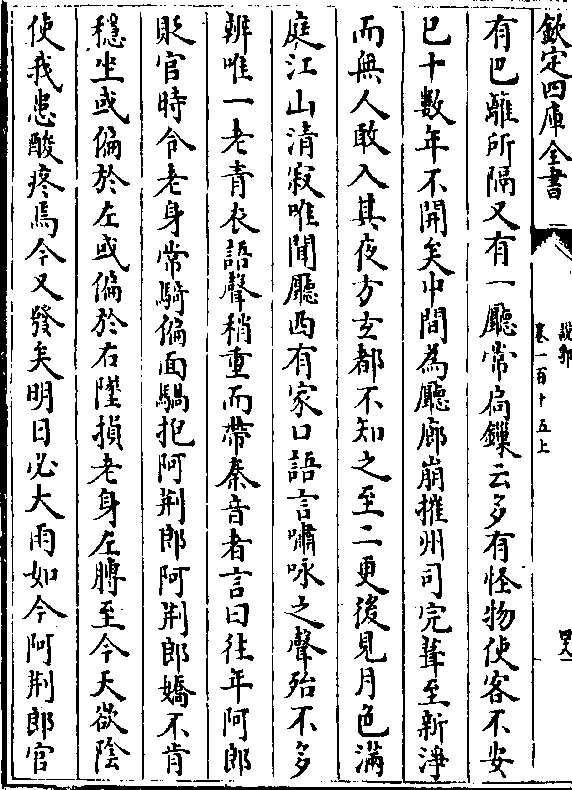 欽定四庫全書
說郛
卷一百十五上
有巴籬所隔又有一廳常扃鏁云多有怪物使客不安
已十數年不開矣中間為廳廊崩摧州司完葺至新淨
而無人敢入其夜方𤣥都不知之至二更後見月色滿
庭江山清寂唯聞廳西有家口語言嘯咏之聲殆不多
辨唯一老青衣語聲稍重而帶秦音者言曰往年阿郎
貶官時令老身常騎偏面騧抱阿荆郎阿荆郎嬌不肯
穩坐或偏於左或偏於右墜損老身左膊至今天欲陰
使我患酸疼焉今又發矣明日必大雨如今阿荆郎官